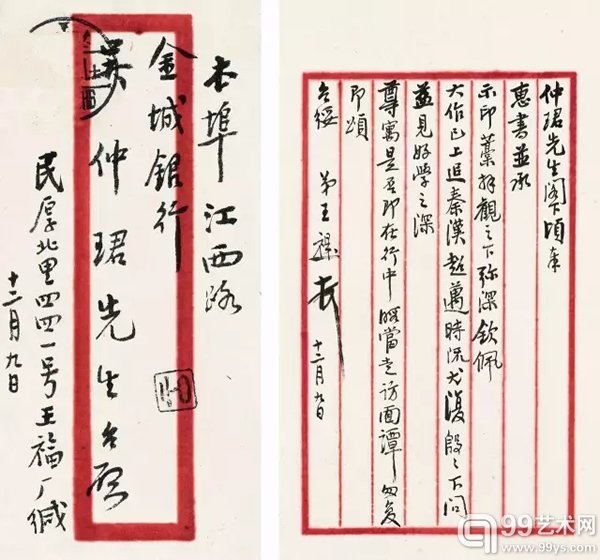 本埠江西路
金城銀行
吳仲珺先生台啓
民厚北里四四一号王福厂緘
十二月九日
仲珺先生阁下頃奉
惠書並承
示印藁拜觀之下弥深欽佩
大作已上追秦漢超邁時流尤復殷〻下问
益見好學之深
尊寓是否即在行中暇當走访面譚匆复
即頌
台綏 弟王禔 十二月九日
99艺术网
www.99ys.com